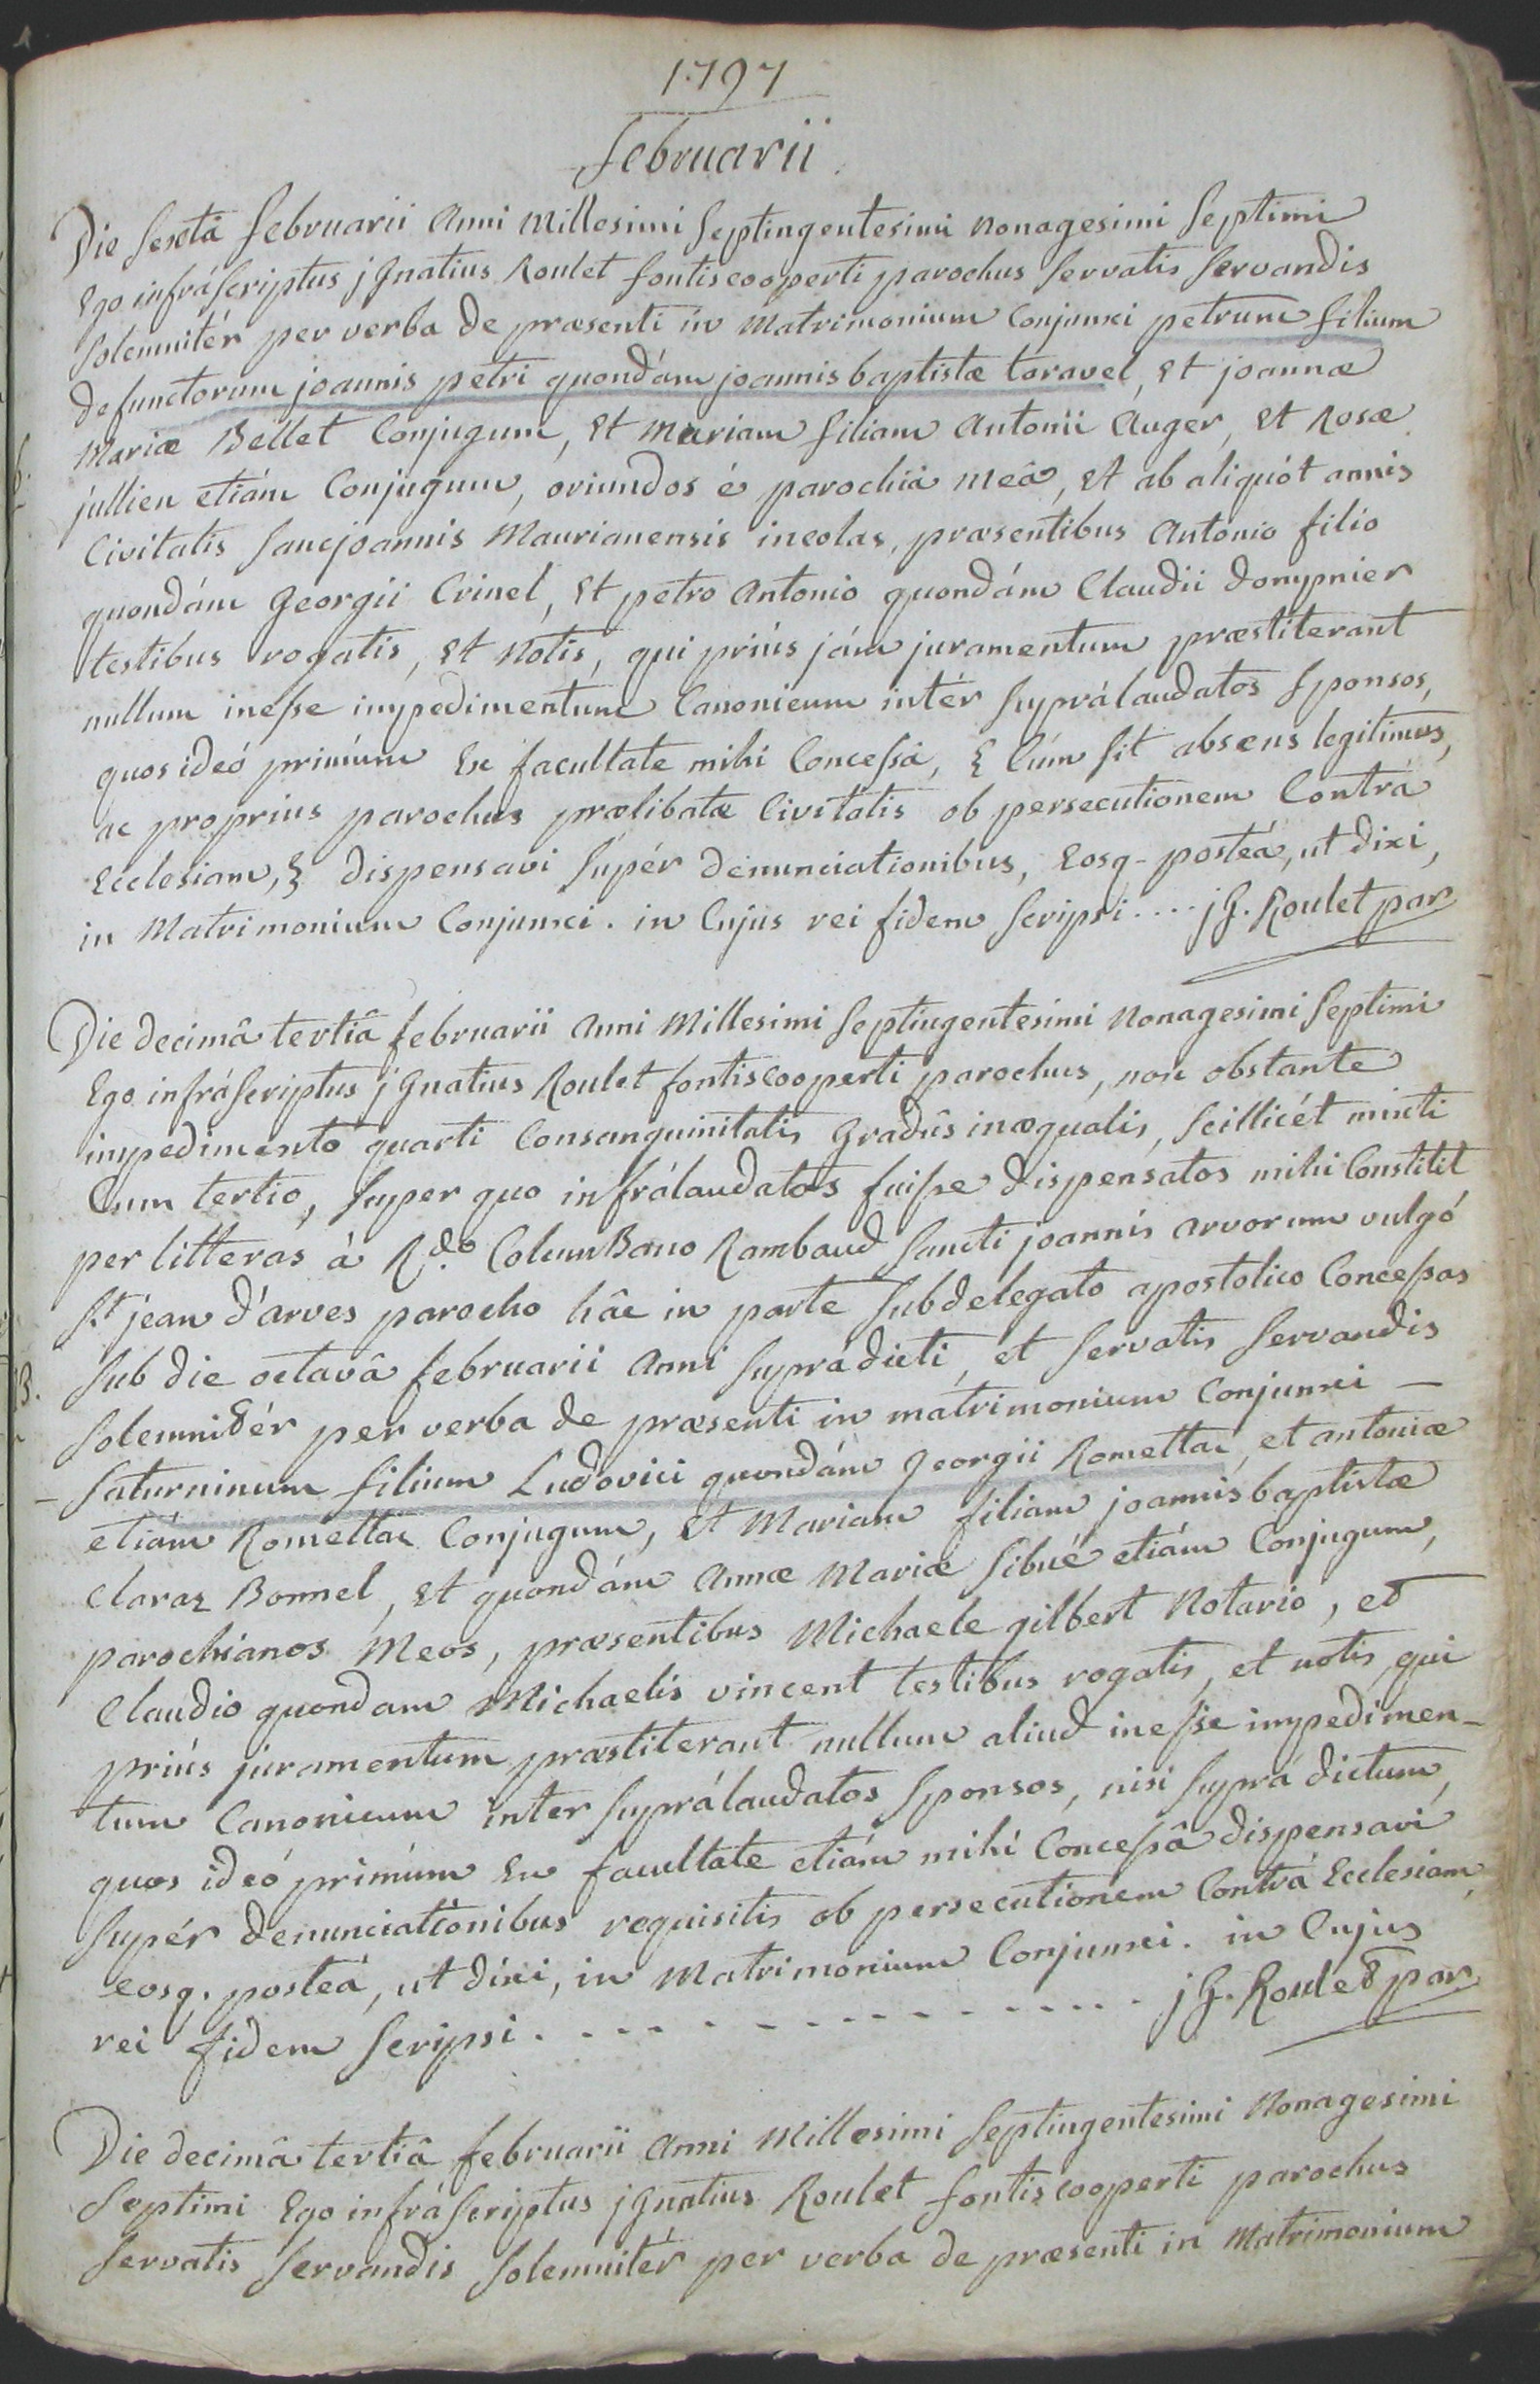 1797
februarii
Die sextâ februarii anni millesimi septingentesimi nonagesimi septimi
Ego infráscriptus jGnatius Roulet fontiscooperti parochus servatis servandis
solemnitér per verba de præsenti in matrimonium conjunxi petrum filium
defunctorum joannis petri quondám joannis baptistæ taravel, et joannæ
mariæ Bellet conjugum, et mariam filiam antonii auger, et Rosæ
6.
jullien etiám conjugum, oriundos é parochiâ meâ, et ab aliquót annis
civitatis sancjoannis maurianensis incolas, præsentibus antonio filio
quondám georgii Crinel, et petro antonio quondám claudii dompnier
testibus rogatis, et notis, qui priús jám juramentum præstiterant
nullum inesse impedimentum canonicum intér suprálaudatos sponsos,
quos ideó primúm ex facultate mihi concessâ, & cúm sit absens legitimus,
ac proprius parochus prælibatæ civitatis ob persecutionem contrá
Ecclesiam, & dispensavi supér denunciationibus, Eosq- posteá, ut dixi,
in matrimonium conjunxi. in cujus rei fidem scripsi .... jG. Roulet par
Die decimâ tertiâ februarii anni millesimi septingentesimi nonagesimi septimi
Ego infráscriptus jGnatius Roulet fontiscooperti parochus, non obstante
impedimento quarti consanguinitatis gradûs inæqualis, scillicét mixti
cum tertio, super quo infrálaudatos fuisse dispensatos mihi constitit
per litteras à R.do ColumBano Rambaud sancti joannis arvorum vulgó
st jean d'arves parocho hâc in parte subdelegato apostolico concessas
sub die octavâ februarii anni suprádicti, et servatis servandis
13.
solemnitér per verba de præsenti in matrimonium conjunxi -
- saturninum filium Ludovici quondám georgii Romettaz, et antoniæ
etiám Romettaz conjugum, et mariam filiam joannis baptistæ
claraz Bonnel, et quondám annæ mariæ sibué etiám conjugum,
parochianos meos, præsentibus michaele gilbert notario, et
claudio quondam michaelis vincent testibus rogatis, et notis, qui
priús juramentum præstiterant nullum aliud inesse impedimen-
tum canonicum inter suprálaudatos sponsos, nisi suprá dictum,
quos ideó primúm ex facultate etiám mihi concessâ dispensavi
supér denunciationibus requisitis ob persecutionem contrá Ecclesiam,
eosq. posteá, ut dixi, in matrimonium conjunxi. in cujus
rei fidem scripsi. - - - - - - - - - - - - jG. Roulet par
Die decimâ tertiâ februarii anni millesimi septingentesimi nonagesimi
septimi Ego infráscriptus jGnatius Roulet fontiscooperti parochus
servatis servandis solemnitér per verba de præsenti in matrimonium